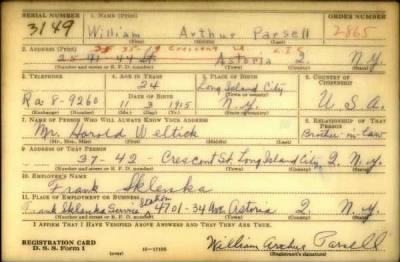 SERIAL NUMBER 1. NAME (Print) ORDER NUMBER
3149 William Arthur Parsell 2865
(First) (Middle) (Last)
2. ADDRESS (Print)
Crescent
44 St. Astoria L. N.Y.
(Number and street or R. F. D. number) (Town) (County) (State)
3. TELEPHONE 4. AGE IN YEARS 5. PLACE OF BIRTH 6. COUNTRY OF CITIZENSHIP
34 Long Island City
Ra 8-9260 DATE OF BIRTH (Town or county)
11 3 1905 N.Y. U.S.A.
(Exchange) (Number) (Mo.) (Day) (Yr.) (State or country)
7. NAME OF PERSON WHO WILL ALWAYS KNOW YOUR ADDRESS 8. RELATIONSHIP OF THAT PERSON
Mr. Harold Weltick Brother-in-law
(Mr., Mrs., Miss) (First) (Middle) (Last)
9. ADDRESS OF THAT PERSON
37-42- Crescent St. Long Island City N.Y.
(Number and street or R. F. D. number) (Town) (County) (State)
10. EMPLOYER'S NAME
Frank Sklenka
11. PLACE OF EMPLOYMENT OR BUSINESS
Frank Sklenka Service Station 4701-34 Ave Astoria N.Y.
(Number and street or R. F. D. number) (Town) (County) (State)
I AFFIRM THAT I HAVE VERIFIED ABOVE ANSWERS AND THAT THEY ARE TRUE.
REGISTRATION CARD
D. S. S. Form 1 (over) William Arthur Parsell
(Registrant's signature)